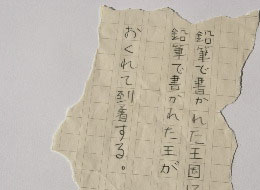 鉛筆で書かれた王国に
鉛筆で書かれた王が
おくれて到着する。